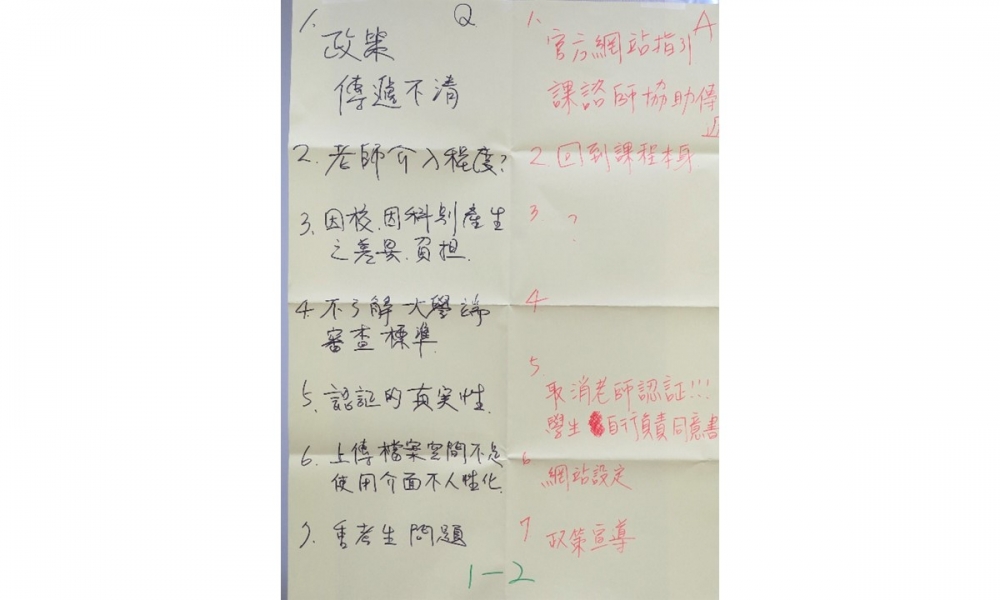 Q
1. 政策
傳遞不清
2. 老師介入程度?
3. 因校、因科別產生
之差異、負担.
4. 不了解大學端
審查標準.
5. 認証的真实性.
6. 上傳檔案空間不足
使用介面不人性化.
7. 重考生問題
A
1. 官方網站指引
課諮師協助傳
2. 回到課程本身
3 ?
4
5 取消老師認証!!!
學生自行負責同意書
6 網站設定
7 政策宣導
1-2